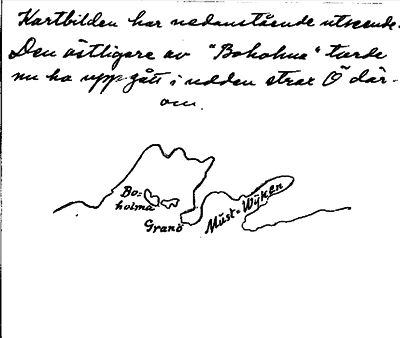 Kartbilden har nedanstående utseende.
Den östligare av "Boholma" torde
nu ha uppgått i udden strax Ö där-
om.
Bo=
holma
Granö
Must=Wÿken